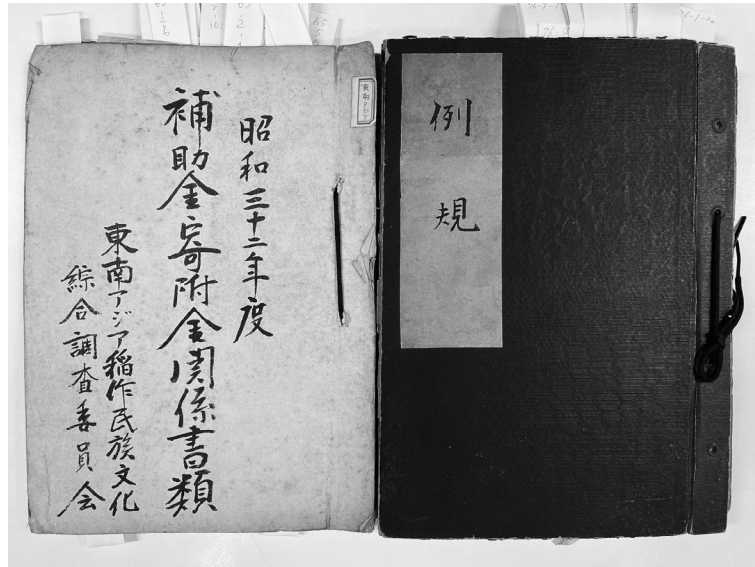 例規
昭和三十二年度
補助金寄附金関係書類
東南アジア稲作民族文化
綜合調査委員会